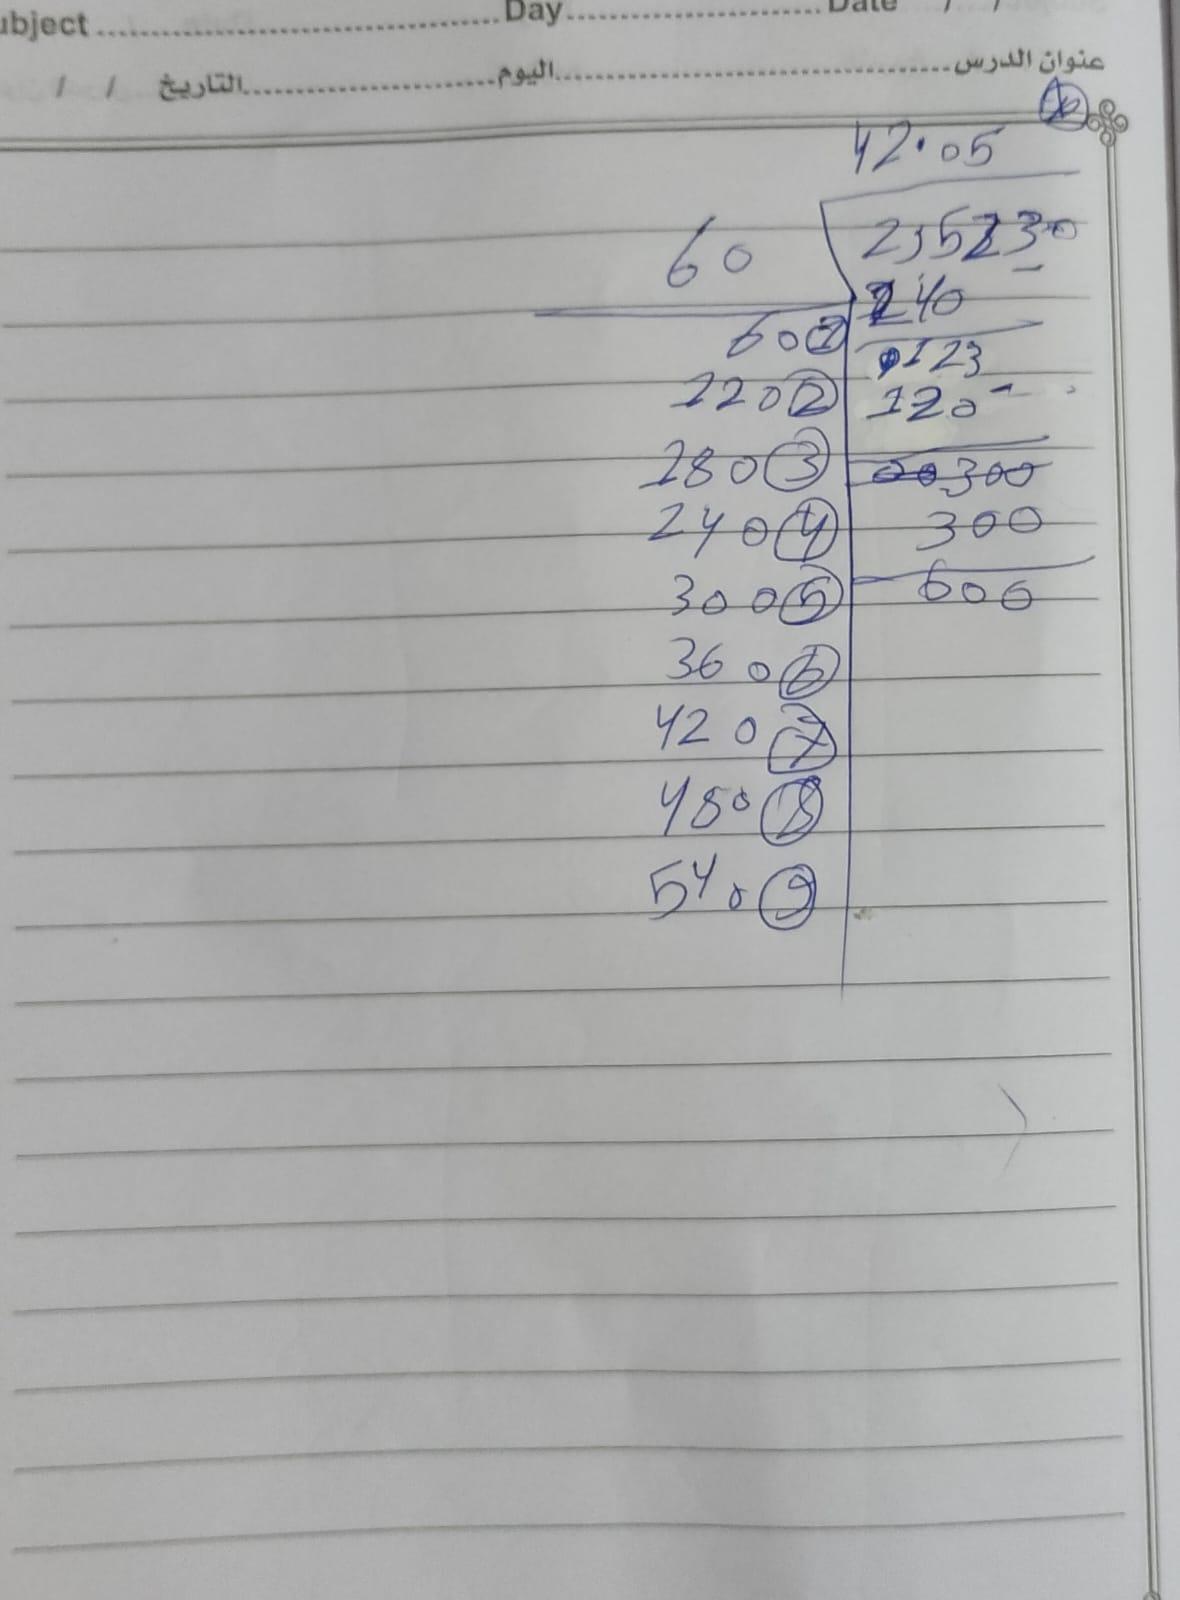 ubject Day Date / /
عنوان الدرس اليوم التاريخ / /
42.05
60 25230
240
60 1 123
120 2 120
180 3 00300
240 4 300
300 5 600
360 6
420 7
480 8
540 9